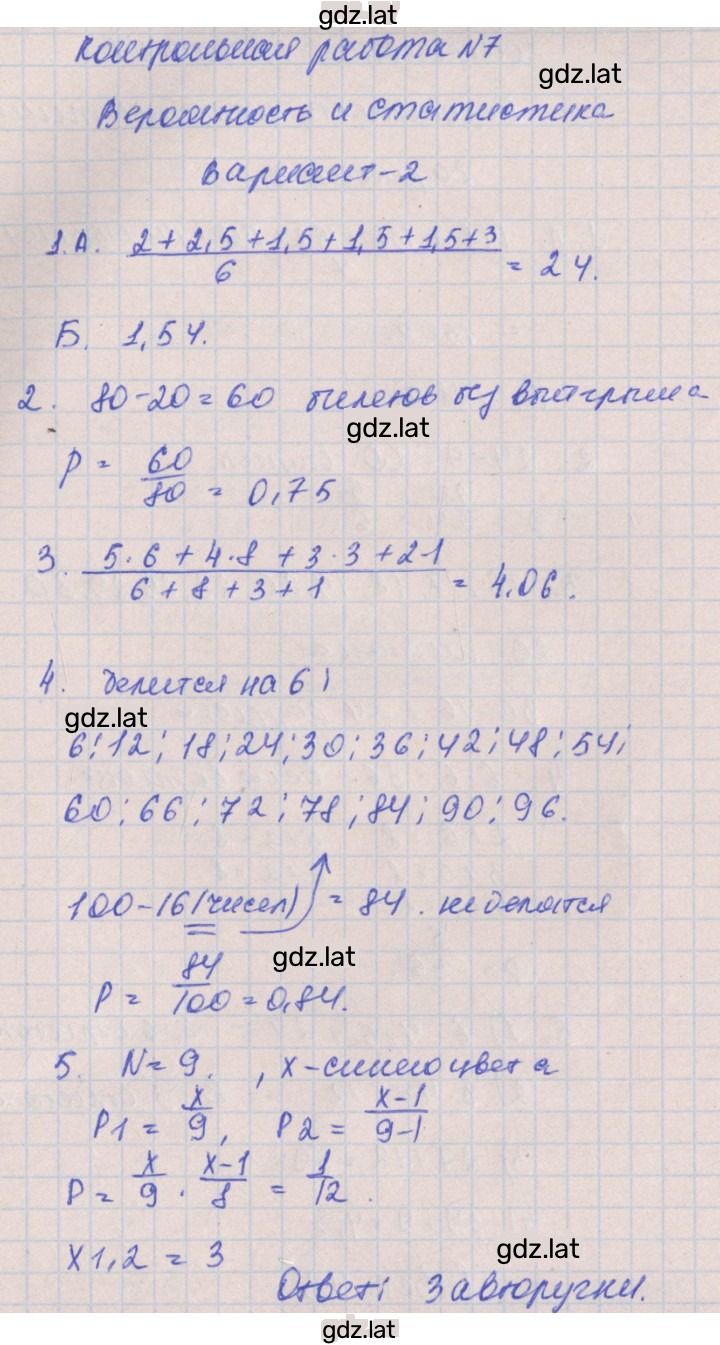 gdz.lat
Контрольная работа N7
gdz.lat
Вероятность и статистика
Вариант-2
1.А. (2 + 2,5 + 1,5 + 1,5 + 1,5 + 3)/6 = 2 ч.
Б. 1,5 ч.
2. 80-20=60 билетов без выигрыша
gdz.lat
P = 60/80 = 0,75
3. (5·6 + 4·8 + 3·3 + 2·1)/(6 + 8 + 3 + 1) = 4.06.
4. делится на 6:
gdz.lat
6; 12; 18; 24; 30; 36; 42; 48; 54;
60; 66; 72; 78; 84; 90; 96.
100-16 (чисел) = 84. не делятся
gdz.lat
P = 84/100 = 0,84.
5. N = 9. , x - синего цвета
P1 = x/9, P2 = (x-1)/(9-1)
P = x/9 · (x-1)/8 = 1/12.
x1,2 = 3
gdz.lat
Ответ: 3 авторучки.
gdz.lat